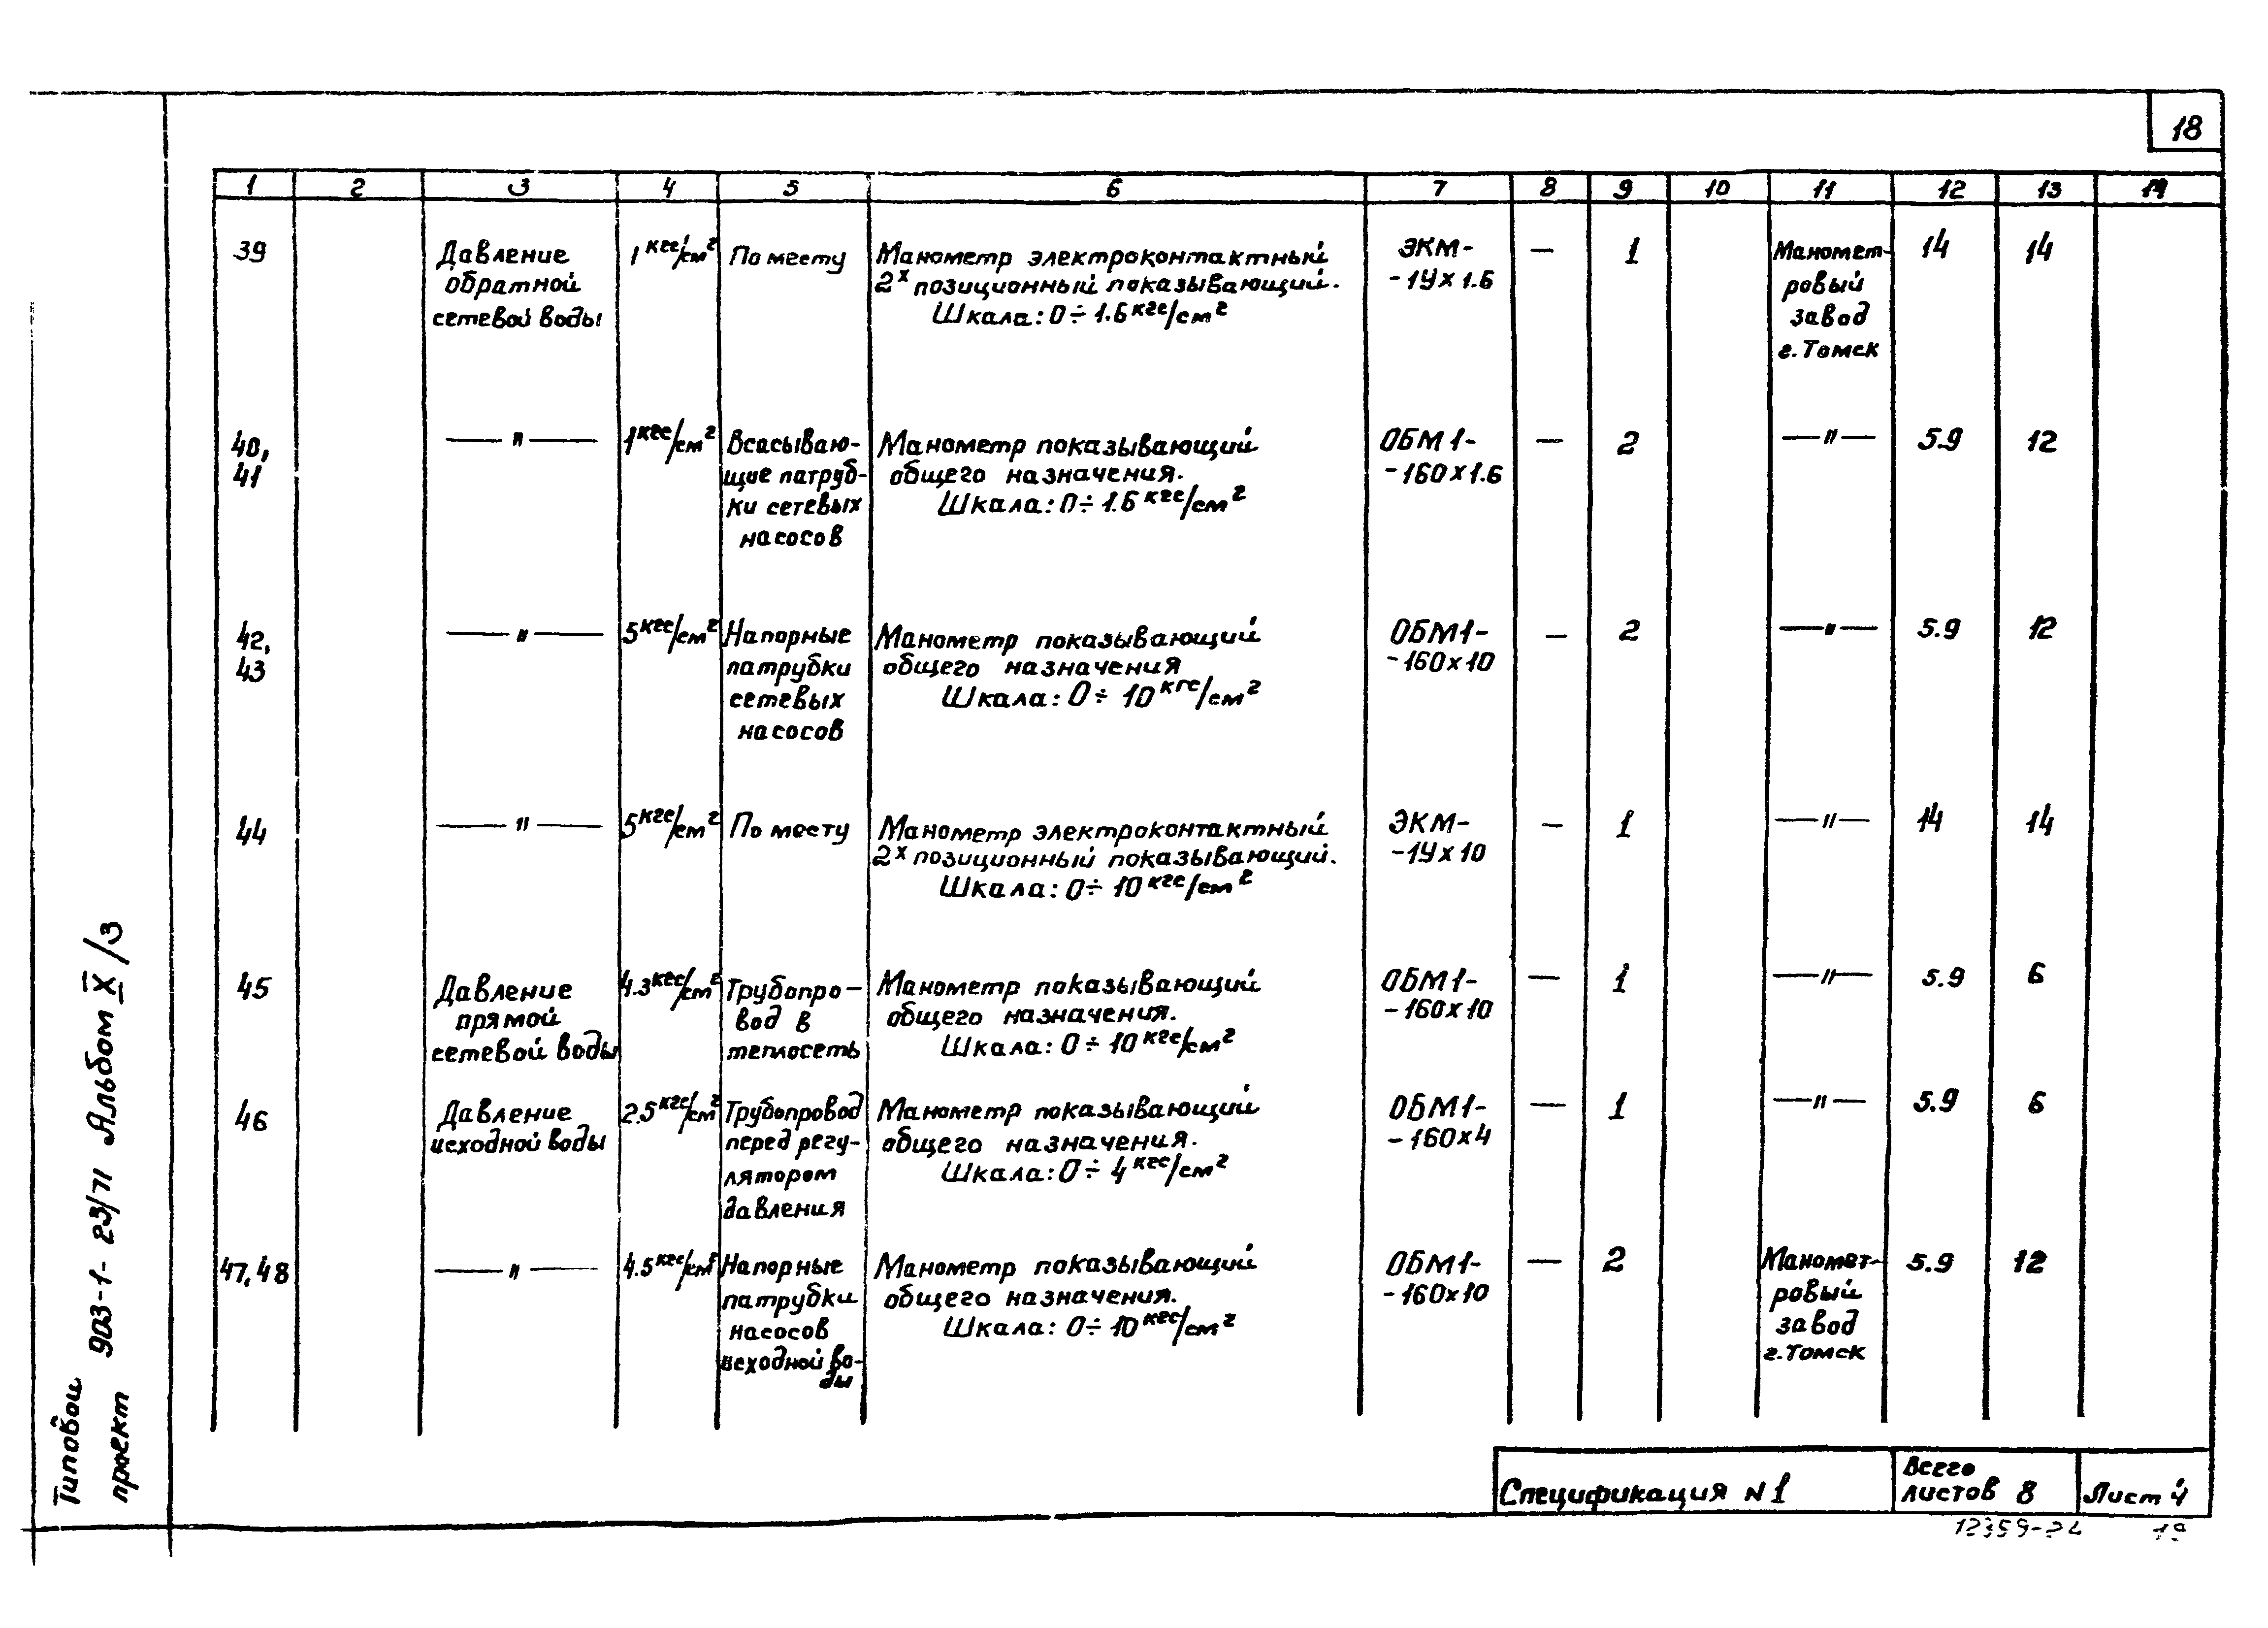 18
1 2 3 4 5 6 7 8 9 10 11 12 13 14
39 Давление обратной сетевой воды 1 кгс/см² По месту Манометр электроконтактный 2х позиционный показывающий. Шкала: 0÷1.6 кгс/см² ЭКМ--1Ух1.6 — 1 Манометровый завод г. Томск 14 14
40, 41 —"— 1 кгс/см² Всасываю-щие патруб-ки сетевых насосов Манометр показывающий общего назначения. Шкала: 0÷1.6 кгс/см² ОБМ1--160х1.6 — 2 —"— 5.9 12
42, 43 —"— 5 кгс/см² Напорные патрубки сетевых насосов Манометр показывающий общего назначения Шкала: 0÷10 кгс/см² ОБМ1--160х10 — 2 —"— 5.9 12
44 —"— 5 кгс/см² По месту Манометр электроконтактный 2х позиционный показывающий. Шкала: 0÷10 кгс/см² ЭКМ--1Ух10 — 1 —"— 14 14
45 Давление прямой сетевой воды 4.3 кгс/см² Трубопро-вод в теплосеть Манометр показывающий общего назначения. Шкала: 0÷10 кгс/см² ОБМ1--160х10 — 1 —"— 5.9 6
46 Давление исходной воды 2.5 кгс/см² Трубопровод перед регу-лятором давления Манометр показывающий общего назначения. Шкала: 0÷4 кгс/см² ОБМ1--160х4 — 1 —"— 5.9 6
47,48 —"— 4.5 кгс/см² Напорные патрубки насосов исходной во-ды Манометр показывающий общего назначения. Шкала: 0÷10 кгс/см² ОБМ1--160х10 — 2 Манометровый завод г. Томск 5.9 12
Типовой проект 903-1-23/71 Альбом X/3
Спецификация №1
Всего листов 8
Лист 4